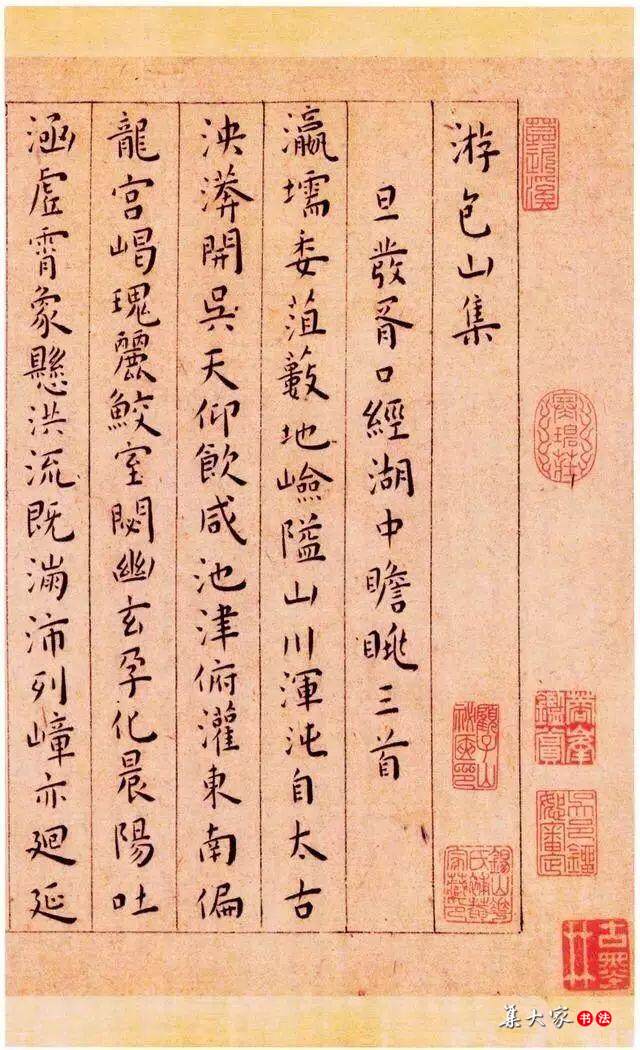 游包山集
旦發胥口經湖中瞻眺三首
瀛壖委菹藪地嶮隘山川渾沌自太古
泱漭開吳天仰飲咸池津俯灌東南偏
龍宮嵑瑰麗鮫室閟幽玄孕化晨陽吐
涵虛霄象懸洪流既滿沛列嶂亦迴延
顧子山秘笈印
集大家
書法